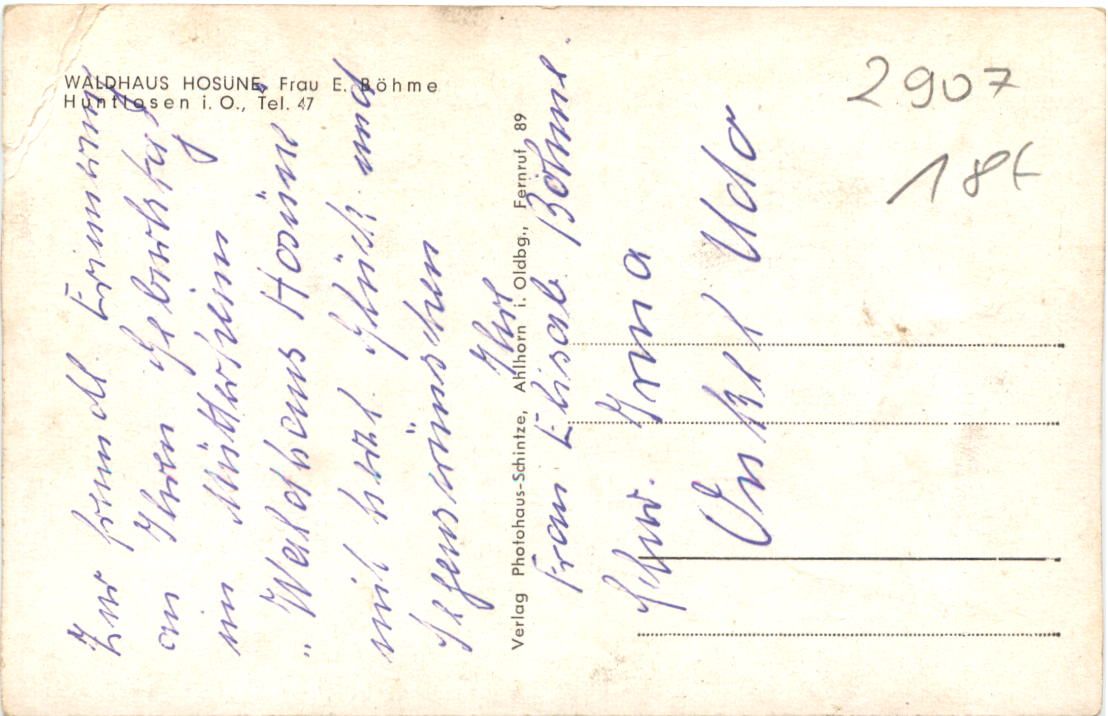 WALDHAUS HOSÜNE, Frau E. Böhme
Huntlosen i. O., Tel. 47
Zur freundl. Erinnerung
an Ihren Geburtstag
im Mütterheim
"Waldhaus Hosüne"
mit herzl. Glück- und
Segenswünschen
Ihre
Frau Elisab. Böhme.
Schw. Irma
Onkel Udo
Verlag Photohaus-Schintze, Ahlhorn i. Oldbg., Fernruf 89
2907
18€